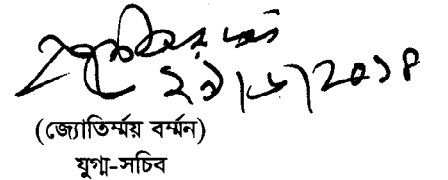 ২৯/৬/2018
(জ্যোতির্ম্ময় বর্ম্মন)
যুগ্ম-সচিব